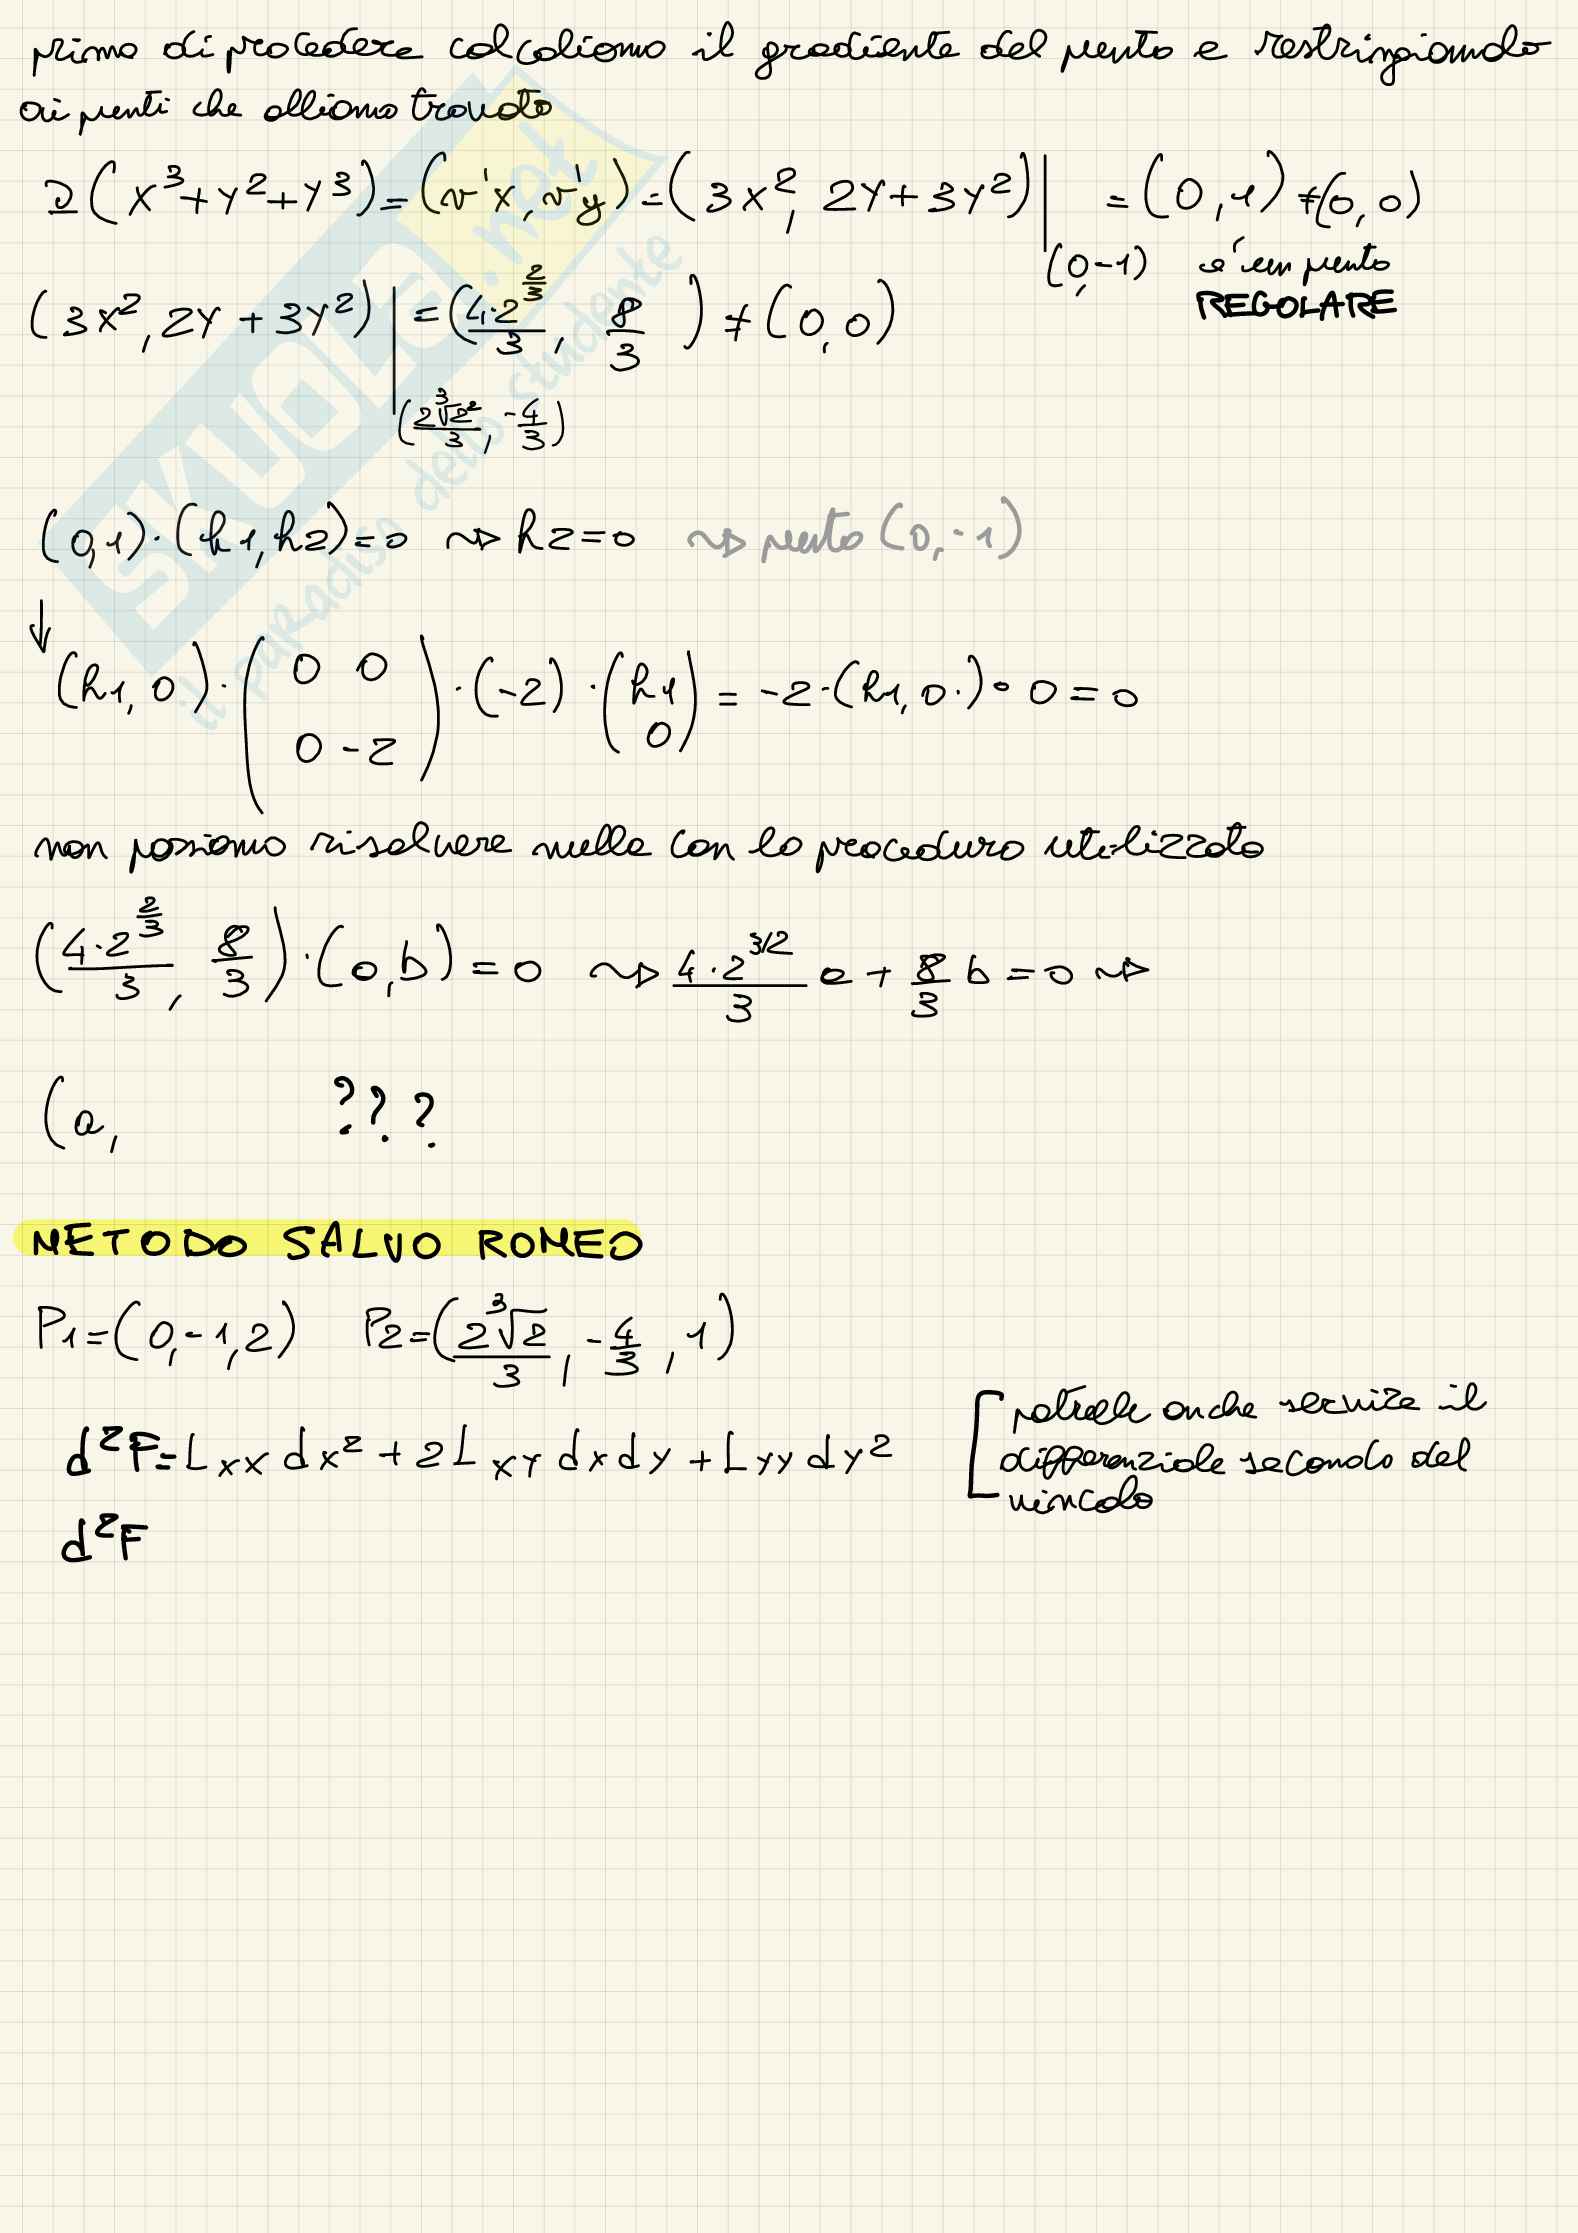 prima di procedere calcoliamo il gradiente del punto e restringiamolo
ai punti che abbiamo trovato
∂(x³+y²+y³)=(v'x, v'y)=(3x², 2y+3y²)|(0,-1) =(0,1)≠(0,0)
è un punto
REGOLARE
(3x², 2y+3y²)|(2∛2²/3, -4/3) =(4·2^(2/3)/3, 8/3) ≠(0,0)
(0,1)·(h1,h2)=0 ⇝ h2=0 ⇝ punto (0,-1)
↓
(h1,0)·(0 0
0 -2)·(-2)·(h1
0) = -2·(h1,0·)·0=0
non possiamo risolvere nulla con la procedura utilizzata
(4·2^(2/3)/3, 8/3)·(a,b)=0 ⇝ 4·2^(3/2)/3 a + 8/3 b=0 ⇝
(a, ???
METODO SALVO ROMEO
P1=(0,-1,2) P2=(2∛2/3, -4/3, 1)
d²F=Lxx dx²+2Lxy dxdy+Lyy dy²
[potrebbe anche servire il
differenziale secondo del
vincolo
d²F
SKUOLA.net
il paradiso dello studente